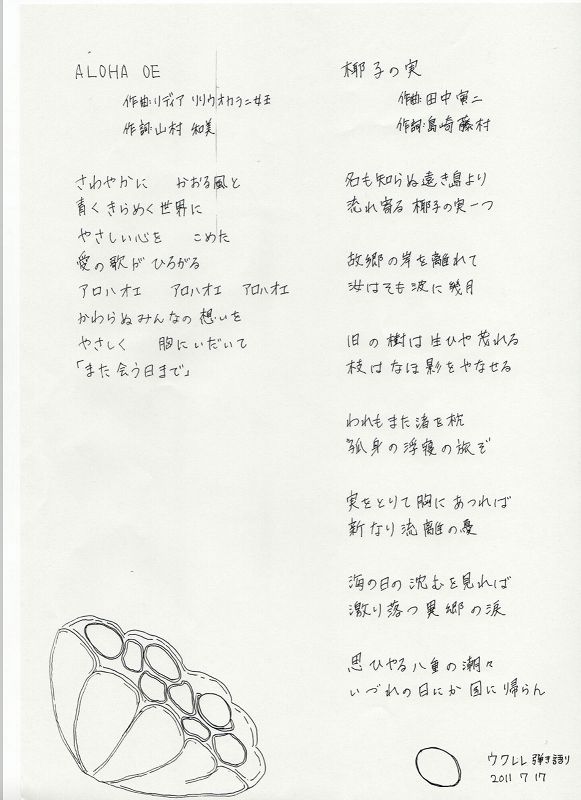 ALOHA OE
作曲:リディア リリウオカラニ女王
作詞:山村 知美
さわやかに かおる風と
青くきらめく世界に
やさしい心を こめた
愛の歌がひろがる
アロハオエ アロハオエ アロハオエ
かわらぬみんなの想いを
やさしく 胸にいだいて
「また会う日まで」
椰子の実
作曲:田中寅二
作詞:島崎藤村
名も知らぬ遠き島より
流れ寄る椰子の実一つ
故郷の岸を離れて
汝はそも波に幾月
旧の樹は生ひや茂れる
枝はなほ影をやなせる
われもまた渚を枕
孤身の浮寝の旅ぞ
実をとりて胸にあつれば
新なり流離の憂
海の日の沈むを見れば
激り落つ異郷の涙
思ひやる八重の潮々
いづれの日にか国に帰らん
ウクレレ弾き語り
2011 7 17